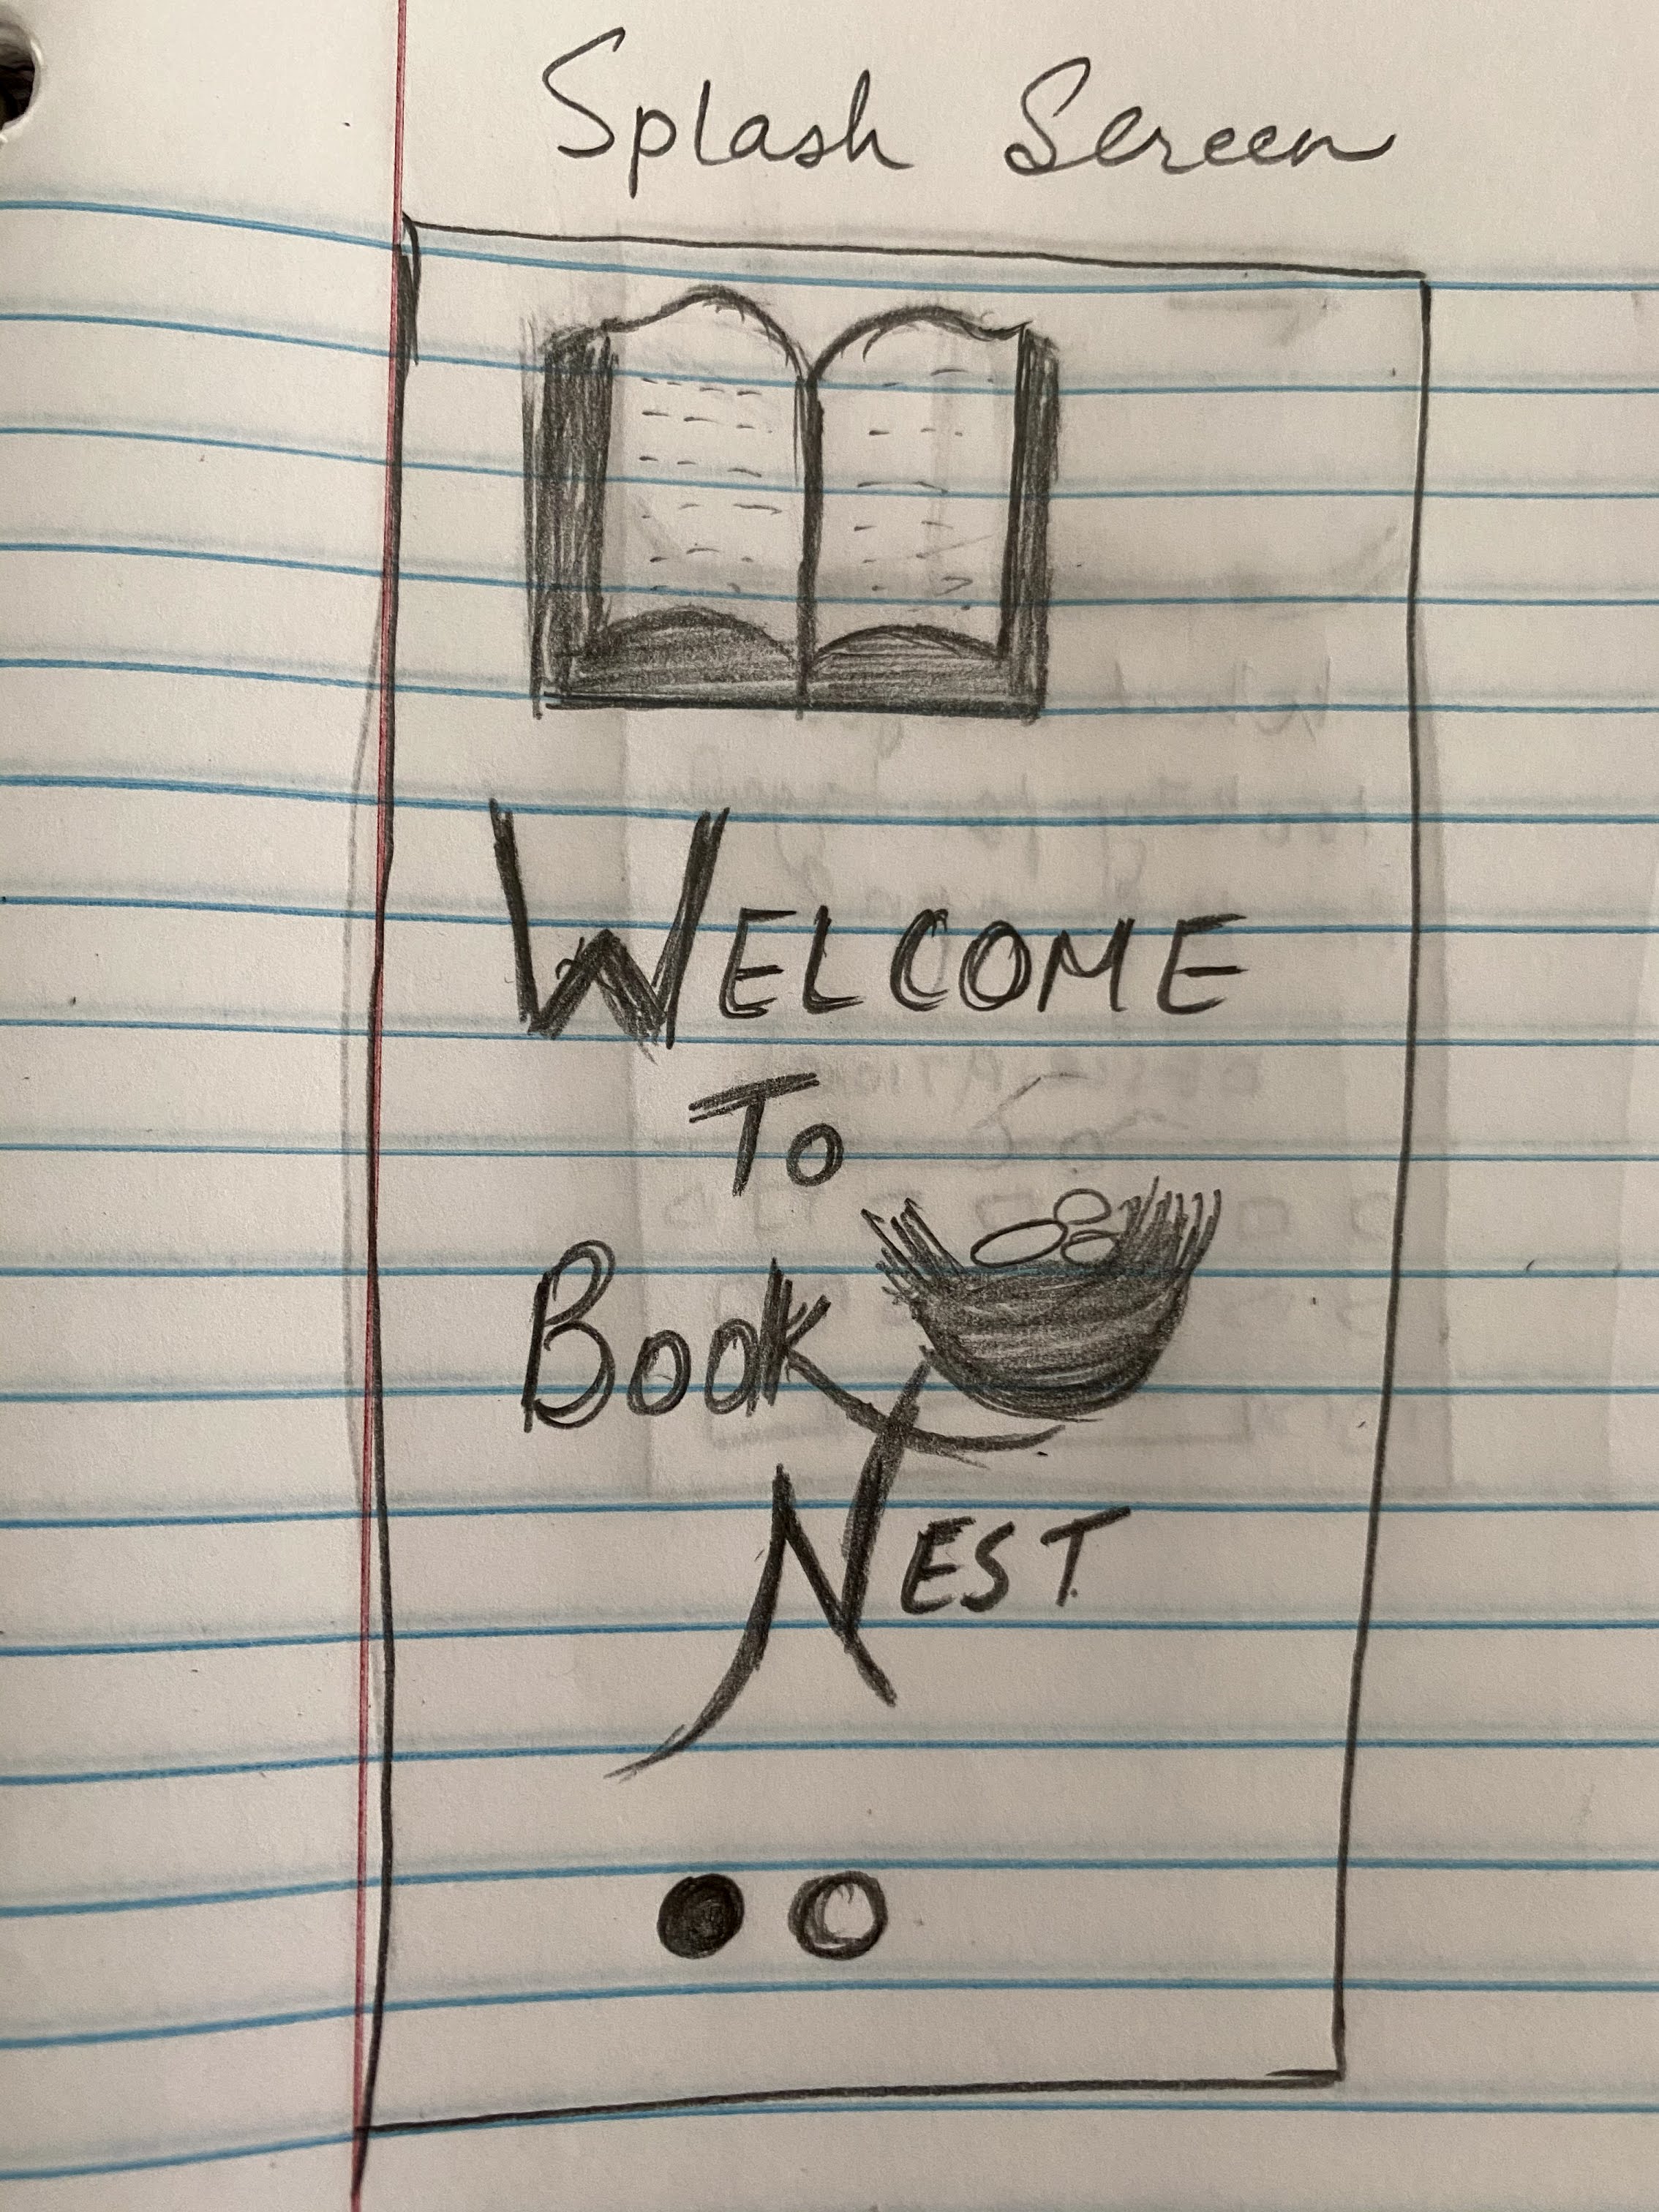 Splash Screen
WELCOME
To
Book
NEST